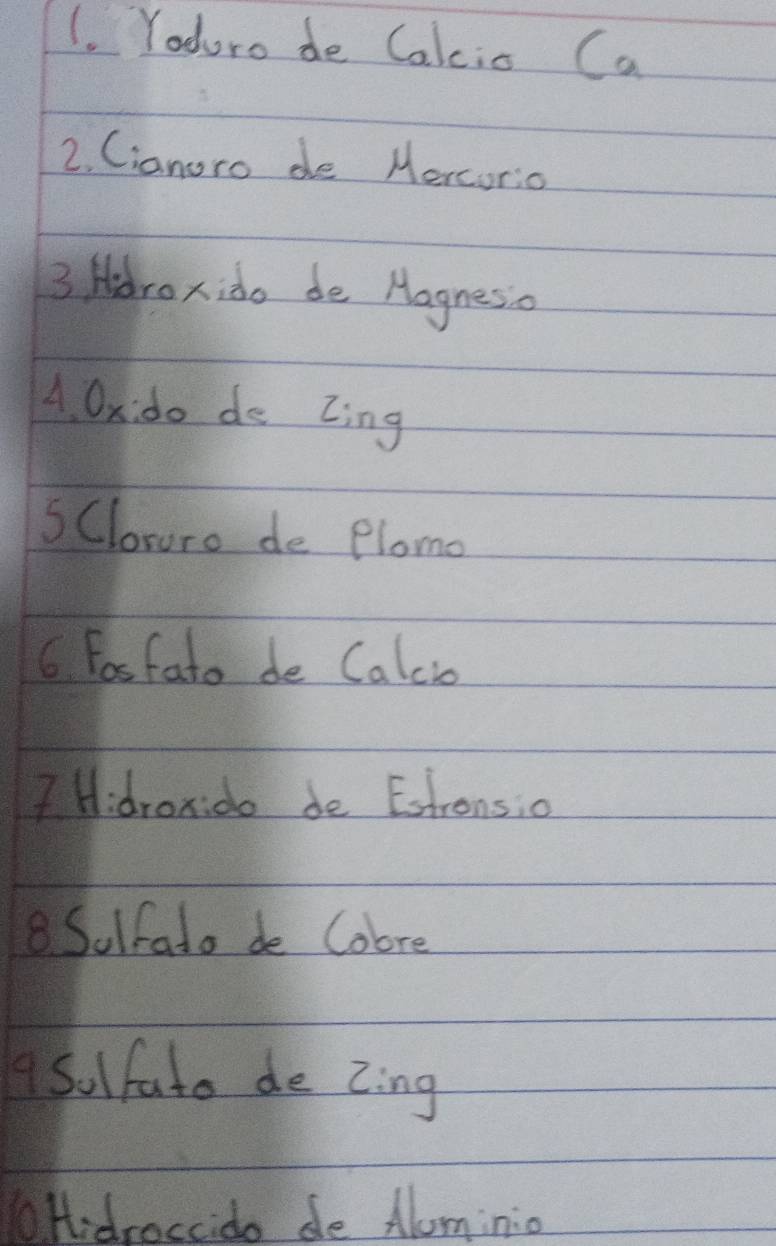 1. Yoduro de Calcio Ca
2. Cianuro de Mercurio
3 Hidroxido de Magnesio
4. Oxido de Zing
5 Cloruro de Plomo
6. Fosfato de Calcio
7 Hidroxido de Estronsio
8. Sulfato de Cobre
9 Sulfato de Zing
10 Hidroccido de Aluminio